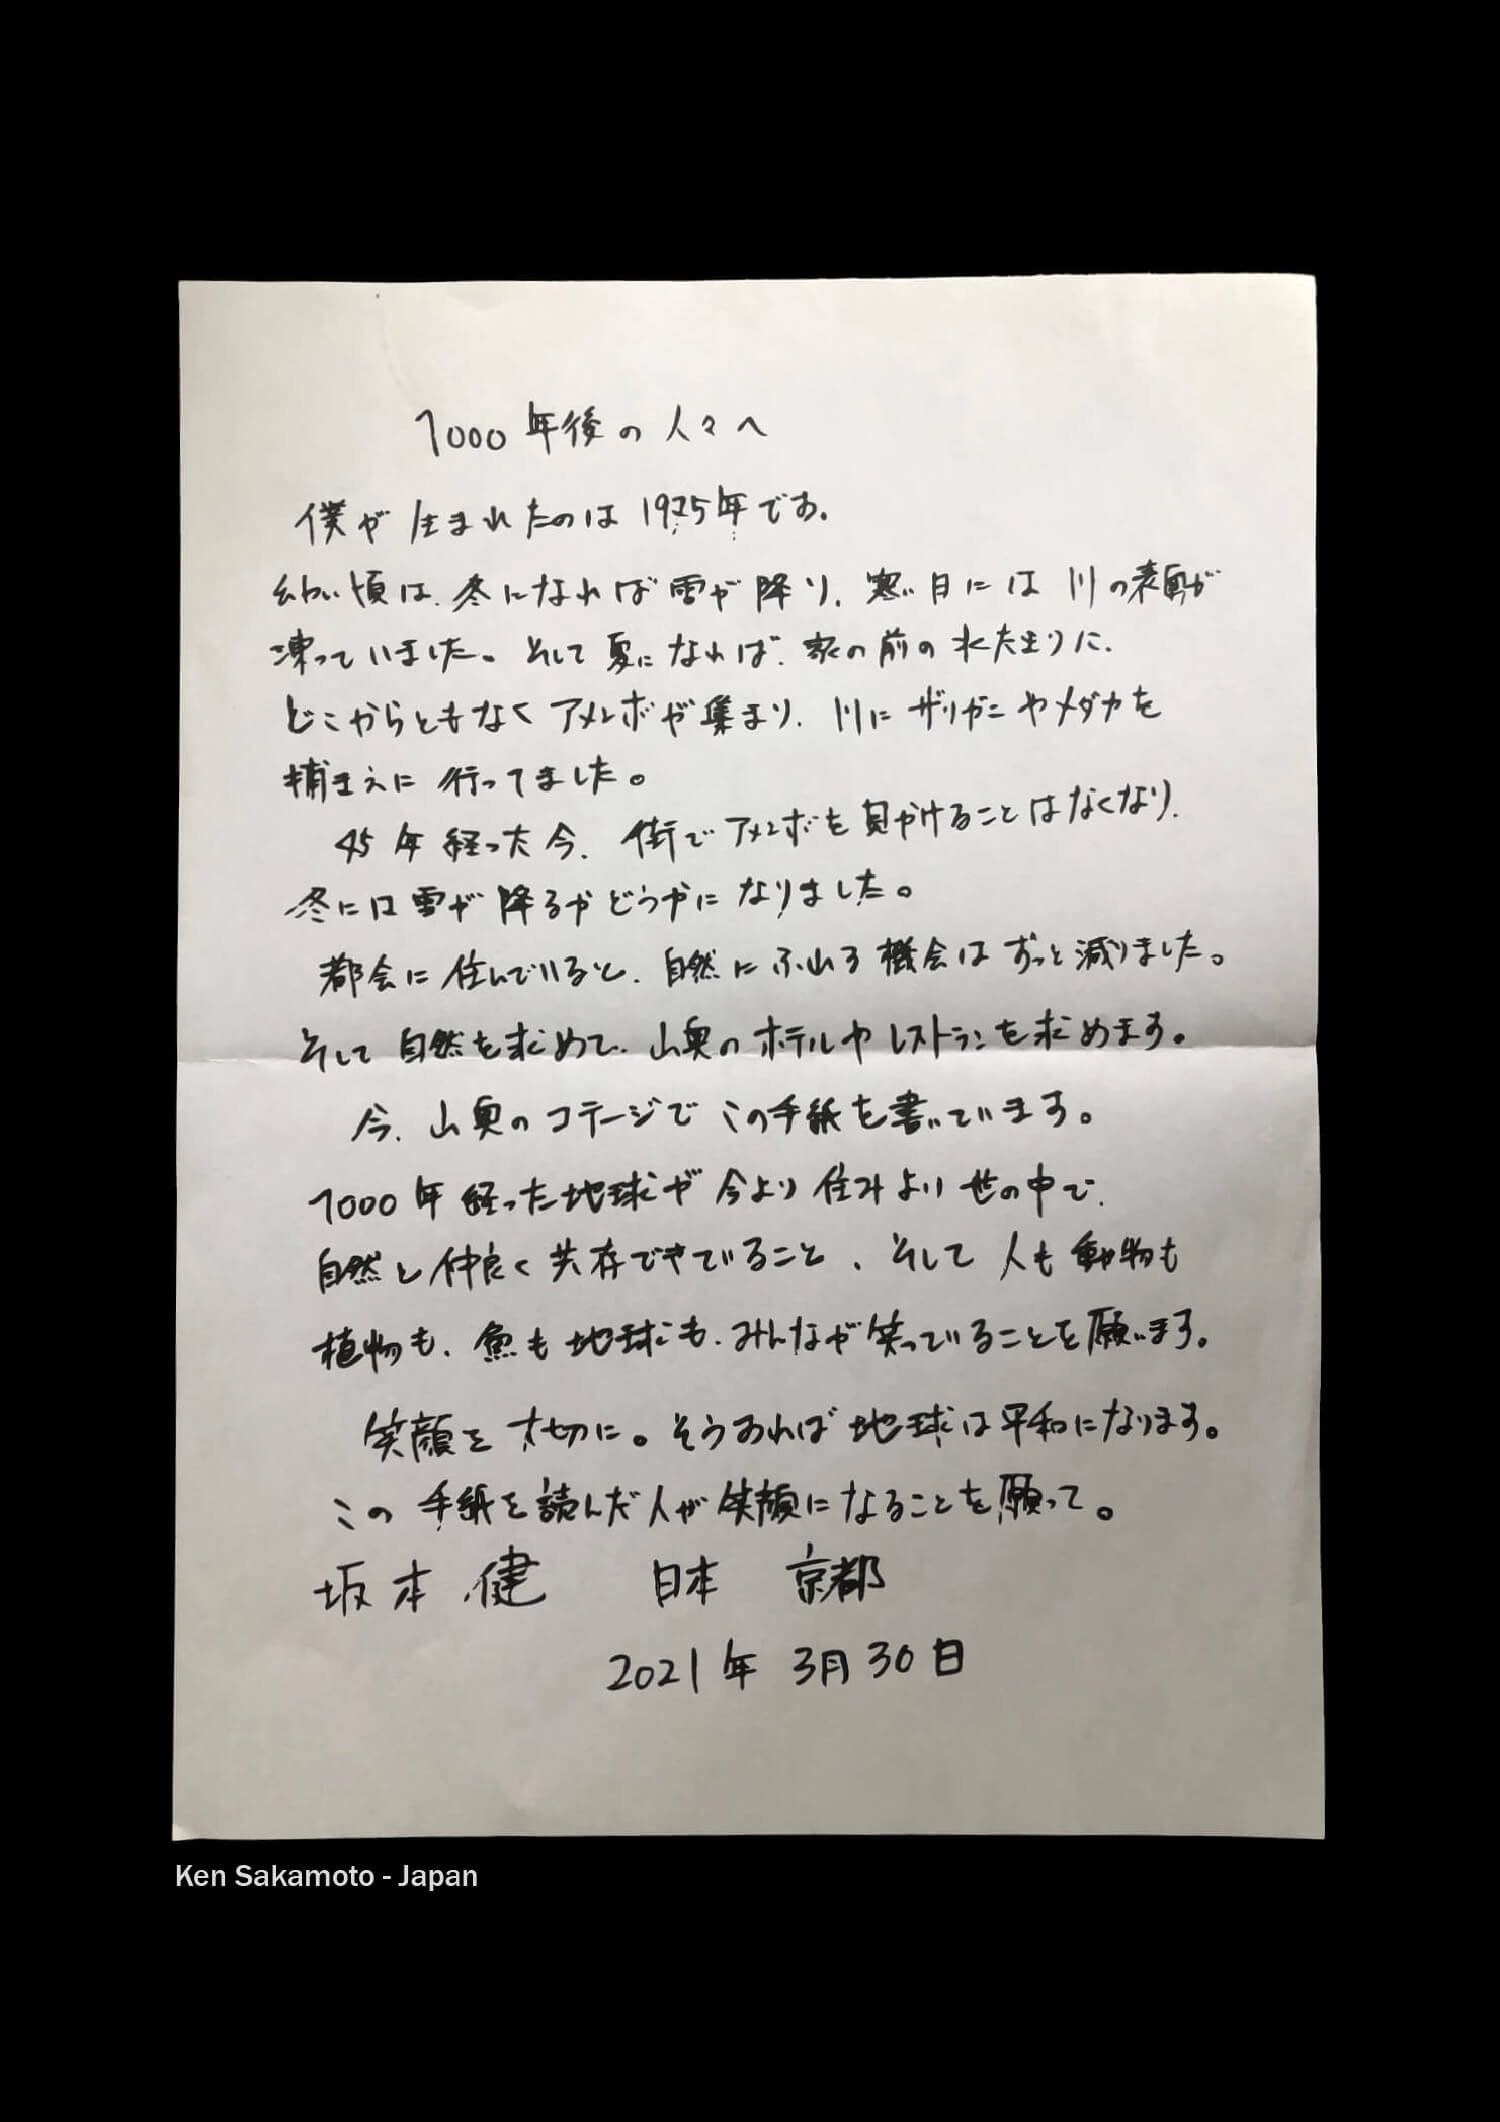 1000年後の人々へ
僕が生まれたのは1975年です。
幼い頃は、冬になれば雪が降り、寒い日には川の表面が
凍っていました。そして夏になれば、家の前の水たまりに、
どこからともなくアメンボが集まり、川にザリガニやメダカを
捕まえに行ってました。
45年経った今、街でアメンボを見かけることはなくなり、
冬には雪が降るかどうかになりました。
都会に住んでいると、自然にふれる機会はずっと減りました。
そして自然を求めて、山奥のホテルやレストランを求めます。
今、山奥のコテージでこの手紙を書いています。
1000年経った地球が今より住みよい世の中で、
自然と仲良く共存できていること、そして人も動物も
植物も、魚も地球も、みんなが笑っていることを願います。
笑顔を大切に。そうすれば地球は平和になります。
この手紙を読んだ人が笑顔になることを願って。
坂本 健 日本 京都
2021年 3月30日
Ken Sakamoto - Japan